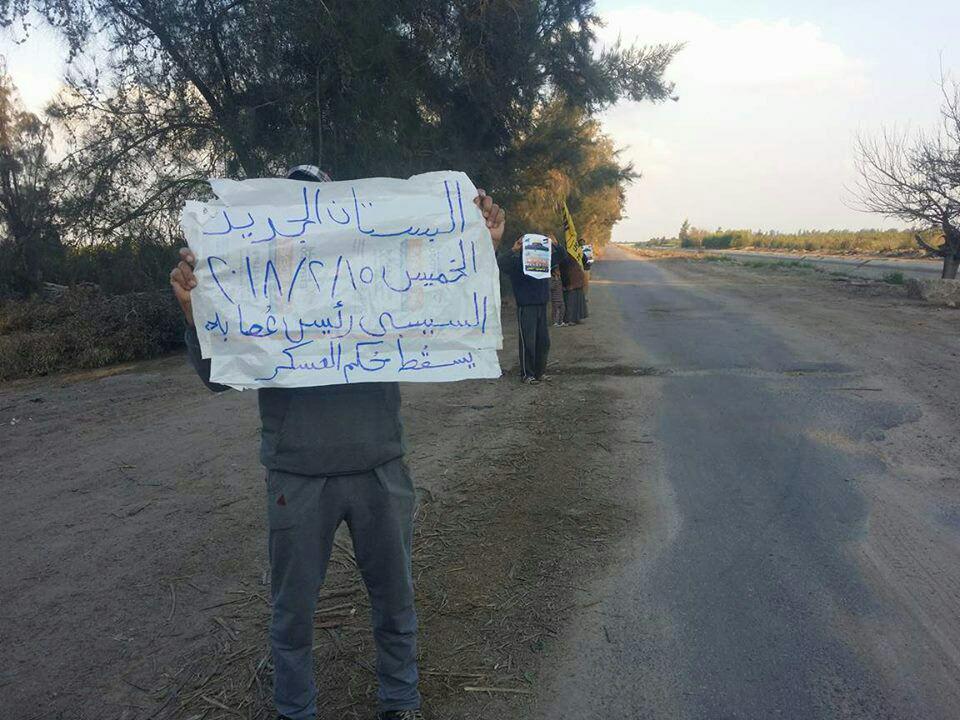 البستان الجديد
الخميس ٢٠١٨/٢/١٥
السيسى رئيس عُصابه
يسقُط حُكم العسكر